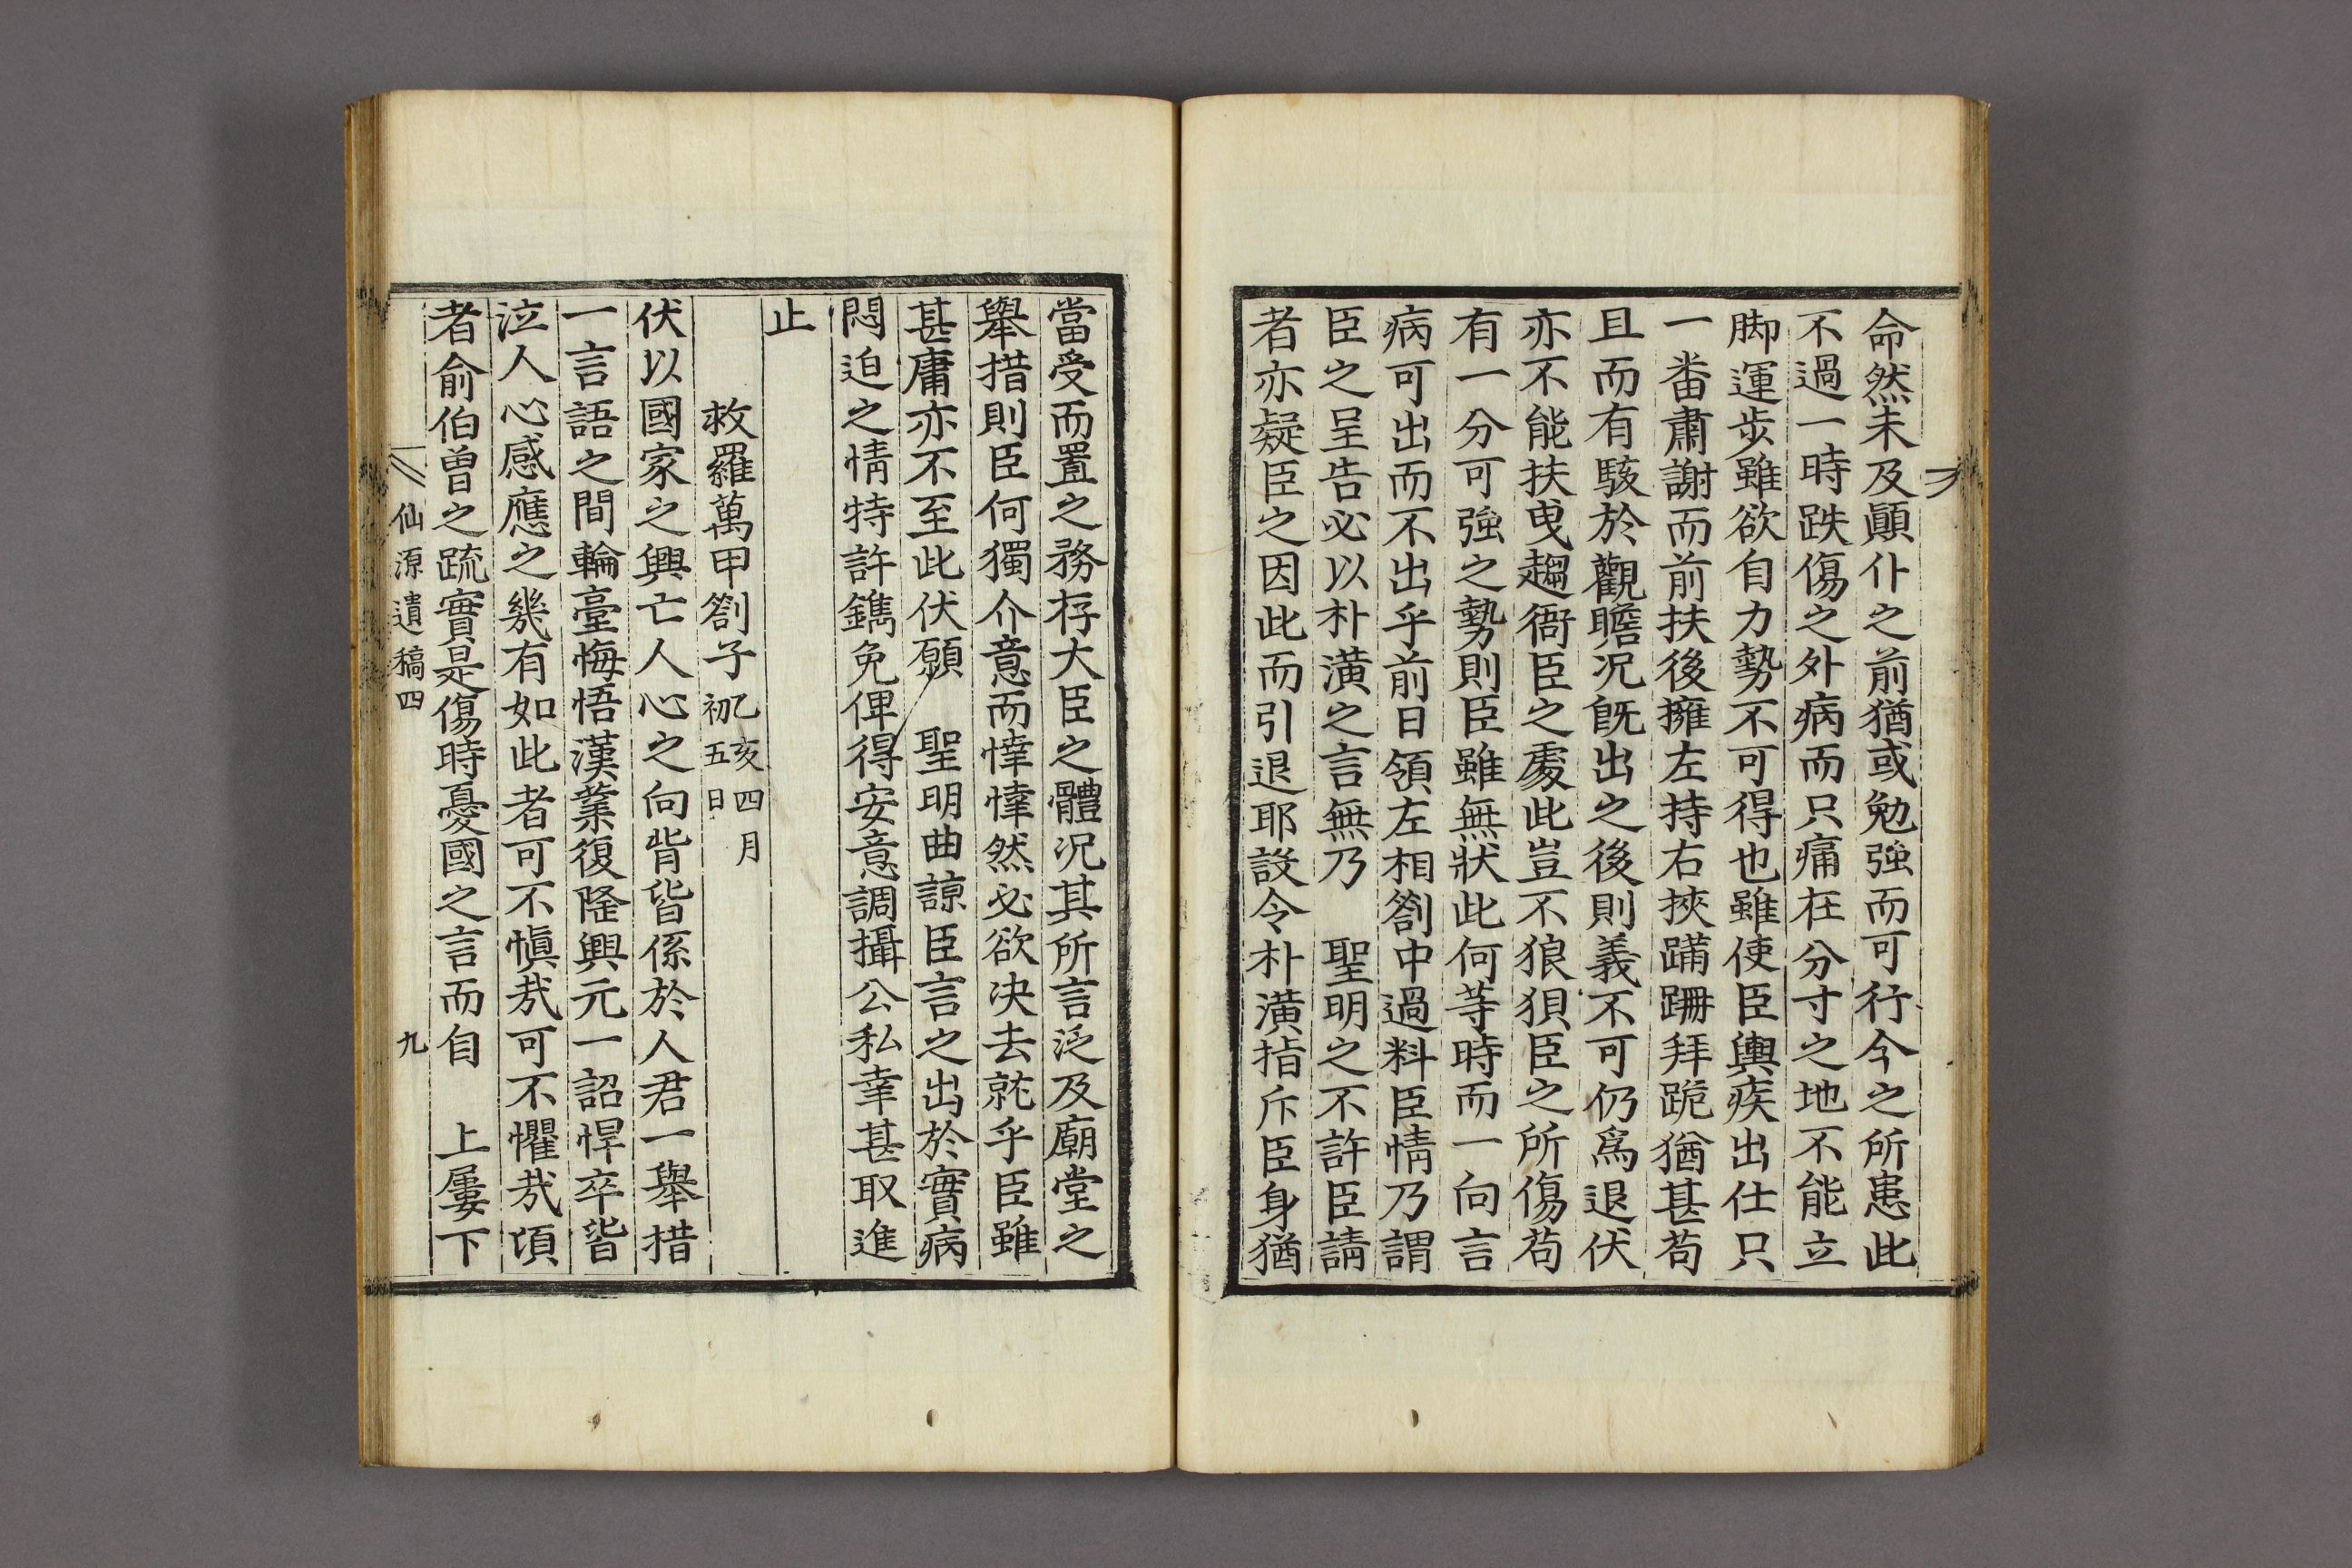 命然未及顚仆之前猶或勉強而可行今之所患此
不過一時跌傷之外病而只痛在分寸之地不能立
脚運步雖欲自力勢不可得也雖使臣輿疾出仕只
一番肅謝而前扶後擁左持右挾蹣跚拜跪猶甚苟
且而有駭於觀瞻况旣出之後則義不可仍爲退伏
亦不能扶曳趨衙臣之處此豈不狼狽臣之所傷苟
有一分可強之勢則臣雖無狀此何等時而一向言
病可出而不出乎前日領左相劄中過料臣情乃謂
臣之呈告必以朴潢之言無乃　聖明之不許臣請
者亦疑臣之因此而引退耶設令朴潢指斥臣身猶
當受而置之務存大臣之體况其所言泛及廟堂之
舉措則臣何獨介意而悻悻然必欲决去就乎臣雖
甚庸亦不至此伏願　聖明曲諒臣言之出於實病
悶迫之情特許鐫免俾得安意調攝公私幸甚取進
止
救羅萬甲劄子 乙亥四月初五日
伏以國家之興亡人心之向背皆係於人君一舉措
一言語之間輪臺悔悟漢業復隆興元一詔悍卒皆
泣人心感應之幾有如此者可不愼㦲可不懼㦲頃
者俞伯曾之疏實是傷時憂國之言而自　上屢下
仙源遺稿四
九